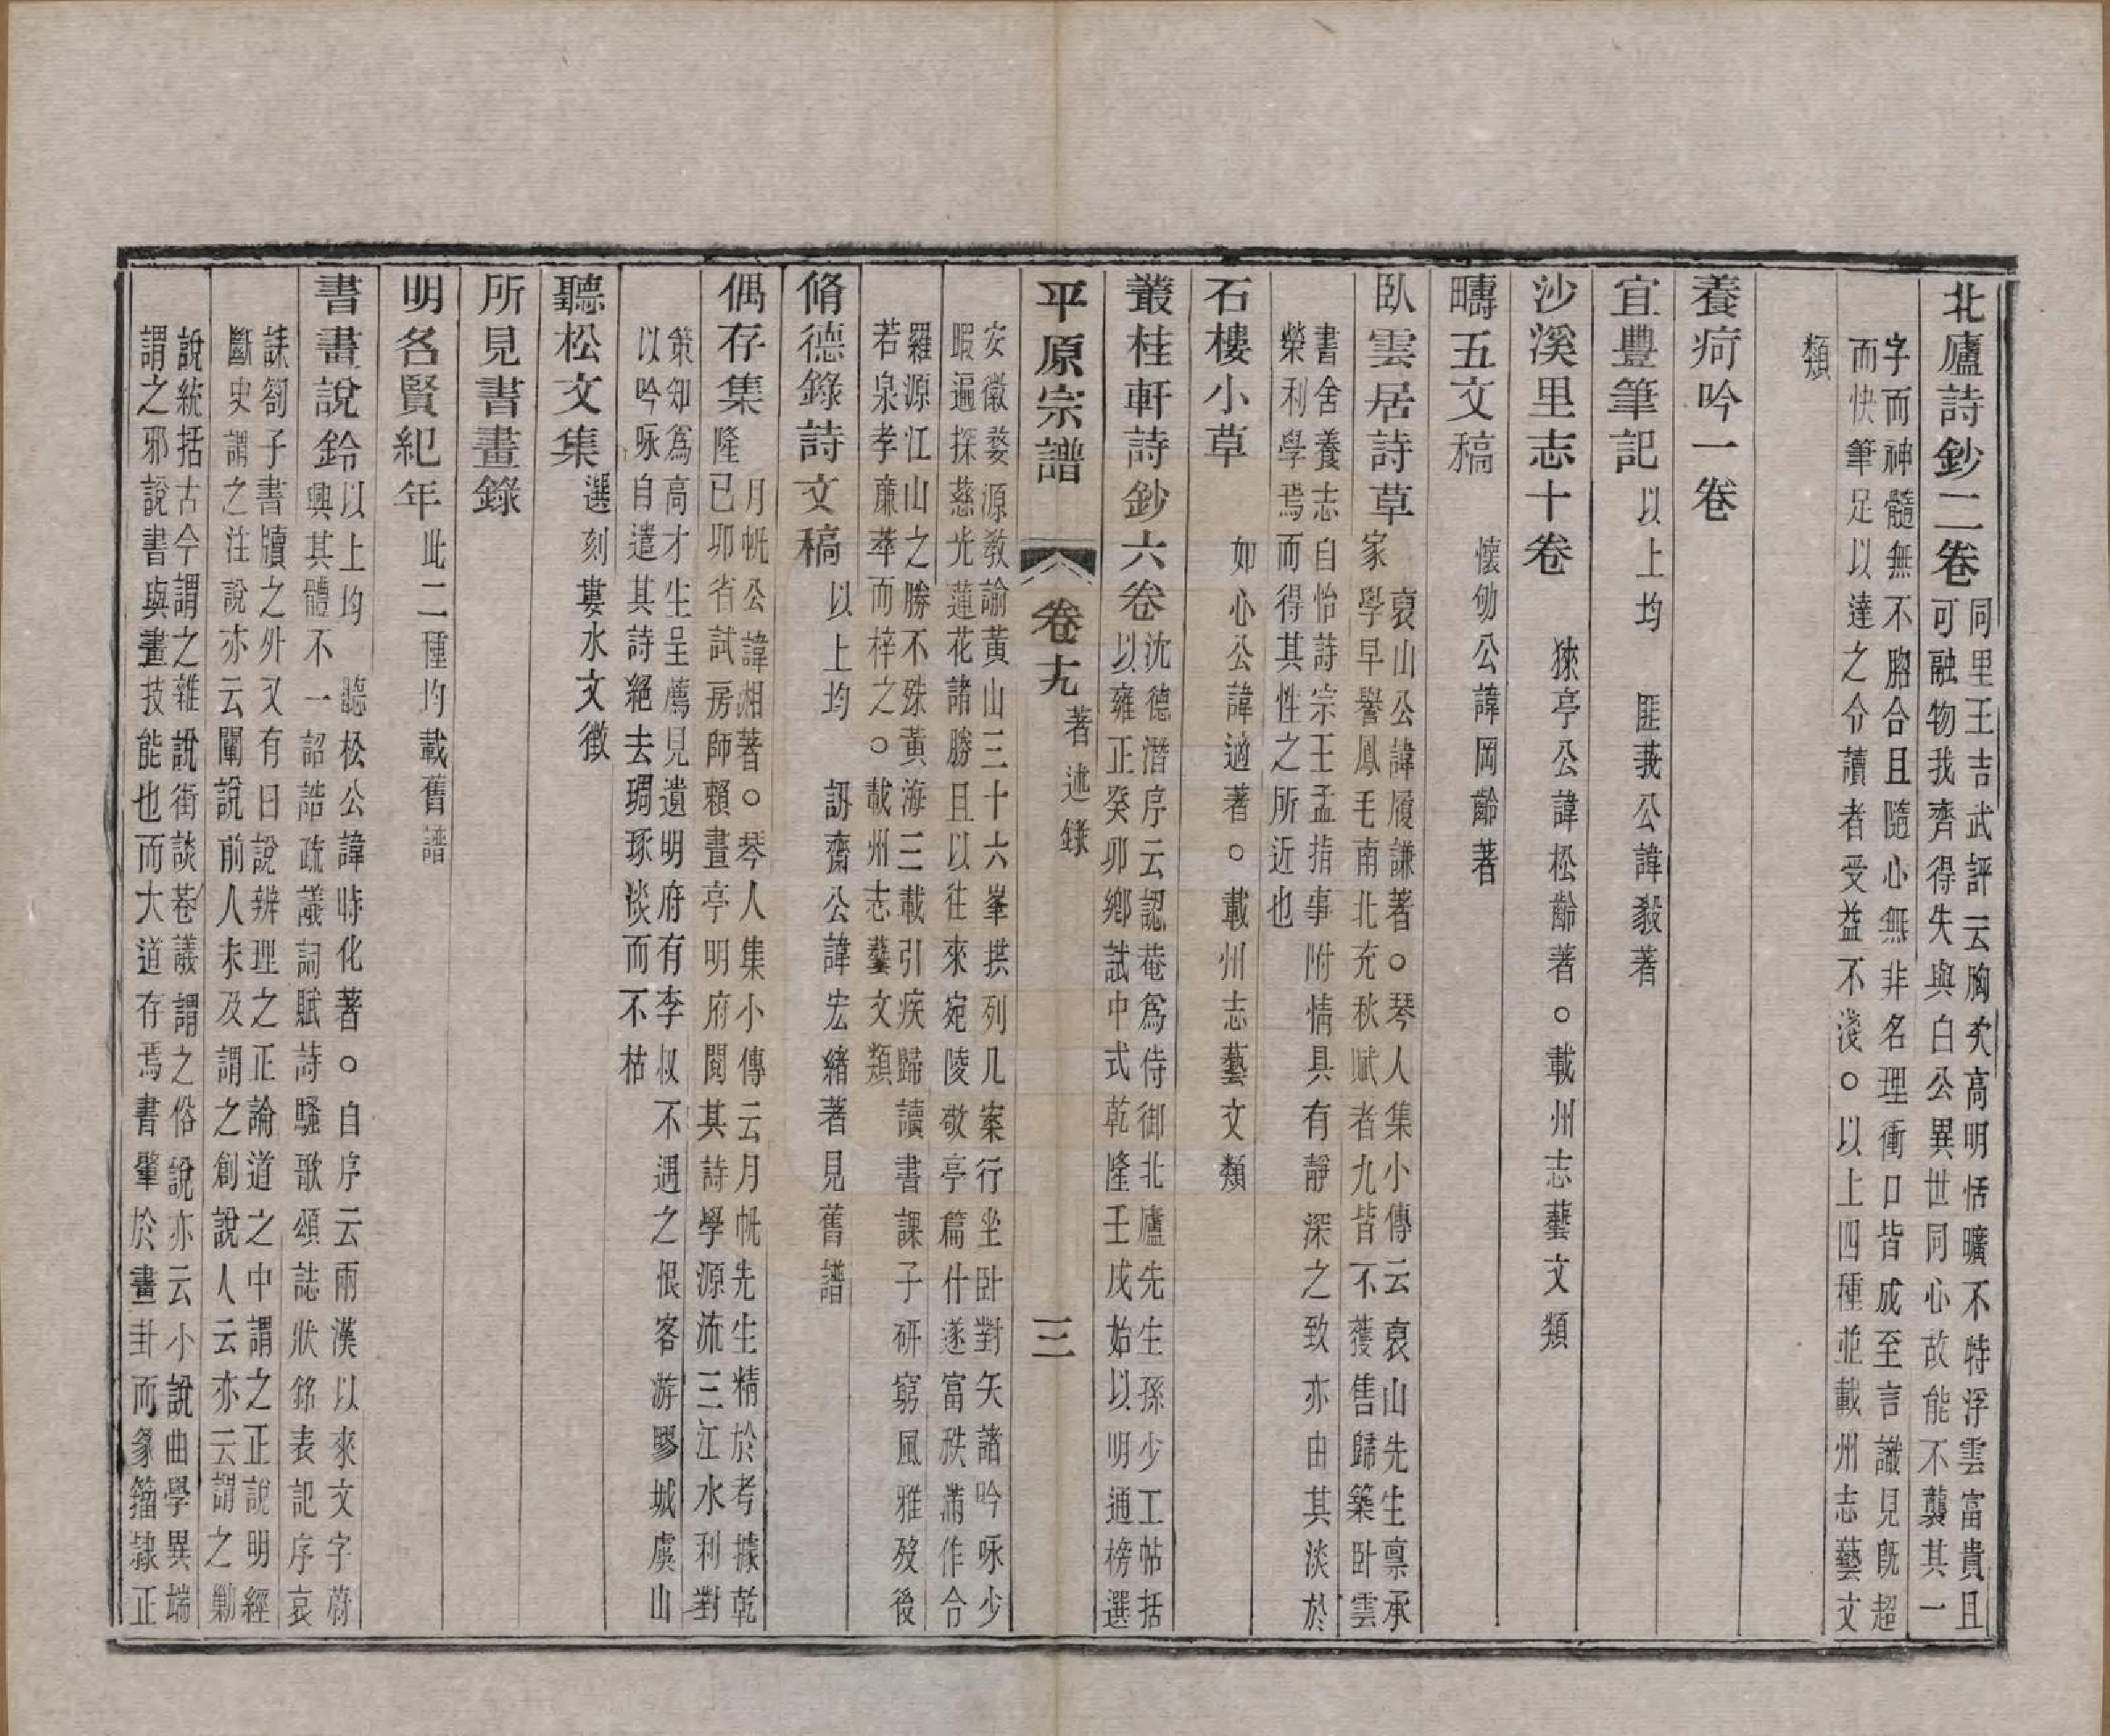 北廬詩鈔二卷
同里王吉武評云胸次高明恬曠不特浮雲富貴且
可融物我齊得失與白公異世同心故能不襲其一
字而神髓無不脗合且隨心無非名理衝口皆成至言識見旣超
而快筆足以達之令讀者受益不淺○以上四種並載州志藝文
類
養疴吟一卷
宜豐筆記 以上均 匪莪公諱毅著
沙溪里志十卷 猍亭公諱松齡著○載州志藝文類
疇五文稿 懷劬公諱岡齡著
臥雲居詩草
裒山公諱履謙著○琴人集小傳云裒山先生禀承
家學早譽鳳毛南北充秋賦者九皆不獲售歸築卧雲
書舍養志自怡詩宗王孟指事附情具有靜深之致亦由其淡於
榮利學焉而得其性之所近也
石樓小草 如心公諱適著○載州志藝文類
叢桂軒詩鈔六卷
沈德潛序云認菴爲侍御北廬先生孫少工帖括
以雍正癸卯鄉試中式乾隆壬戌始以明通榜選
平原宗譜 卷十九 著述錄 三
安徽婺源教諭黃山三十六峯拱列几案行坐卧對矢諸吟咏少
暇遍探慈光蓮花諸勝且以往來宛陵敬亭篇什遂富秩滿作合
羅源江山之勝不殊黃海三載引疾歸讀書課子研窮風雅歿後
若泉孝廉萃而梓之○載州志藝文類
脩德錄詩文稿 以上均 訒齋公諱宏緒著見舊譜
偶存集
月帆公諱湘著○琴人集小傳云月帆先生精於考據乾
隆已卯省試房師賴晝亭明府閱其詩學源流三江水利對
策知爲高才生呈薦見遺明府有李叔不遇之恨客游膠城虞山
以吟咏自遣其詩絕去琱琢淡而不枯
聽松文集 選刻婁水文徵
所見書畫錄
明名賢紀年 此二種均載舊譜
書畫說鈴
以上均 聽松公諱時化著○自序云兩漢以來文字蔚
興其體不一詔誥疏議詞賦詩騷歌頌誌狀銘表記序哀
誄劄子書牘之外又有曰說辨理之正論道之中謂之正說明經
斷史謂之注說亦云闡說前人未及謂之創說人云亦云謂之勦
說統括古今謂之雜說街談巷議謂之俗說亦云小說曲學異端
謂之邪說書與畫技能也而大道存焉書肇於畫卦而篆籀隸正